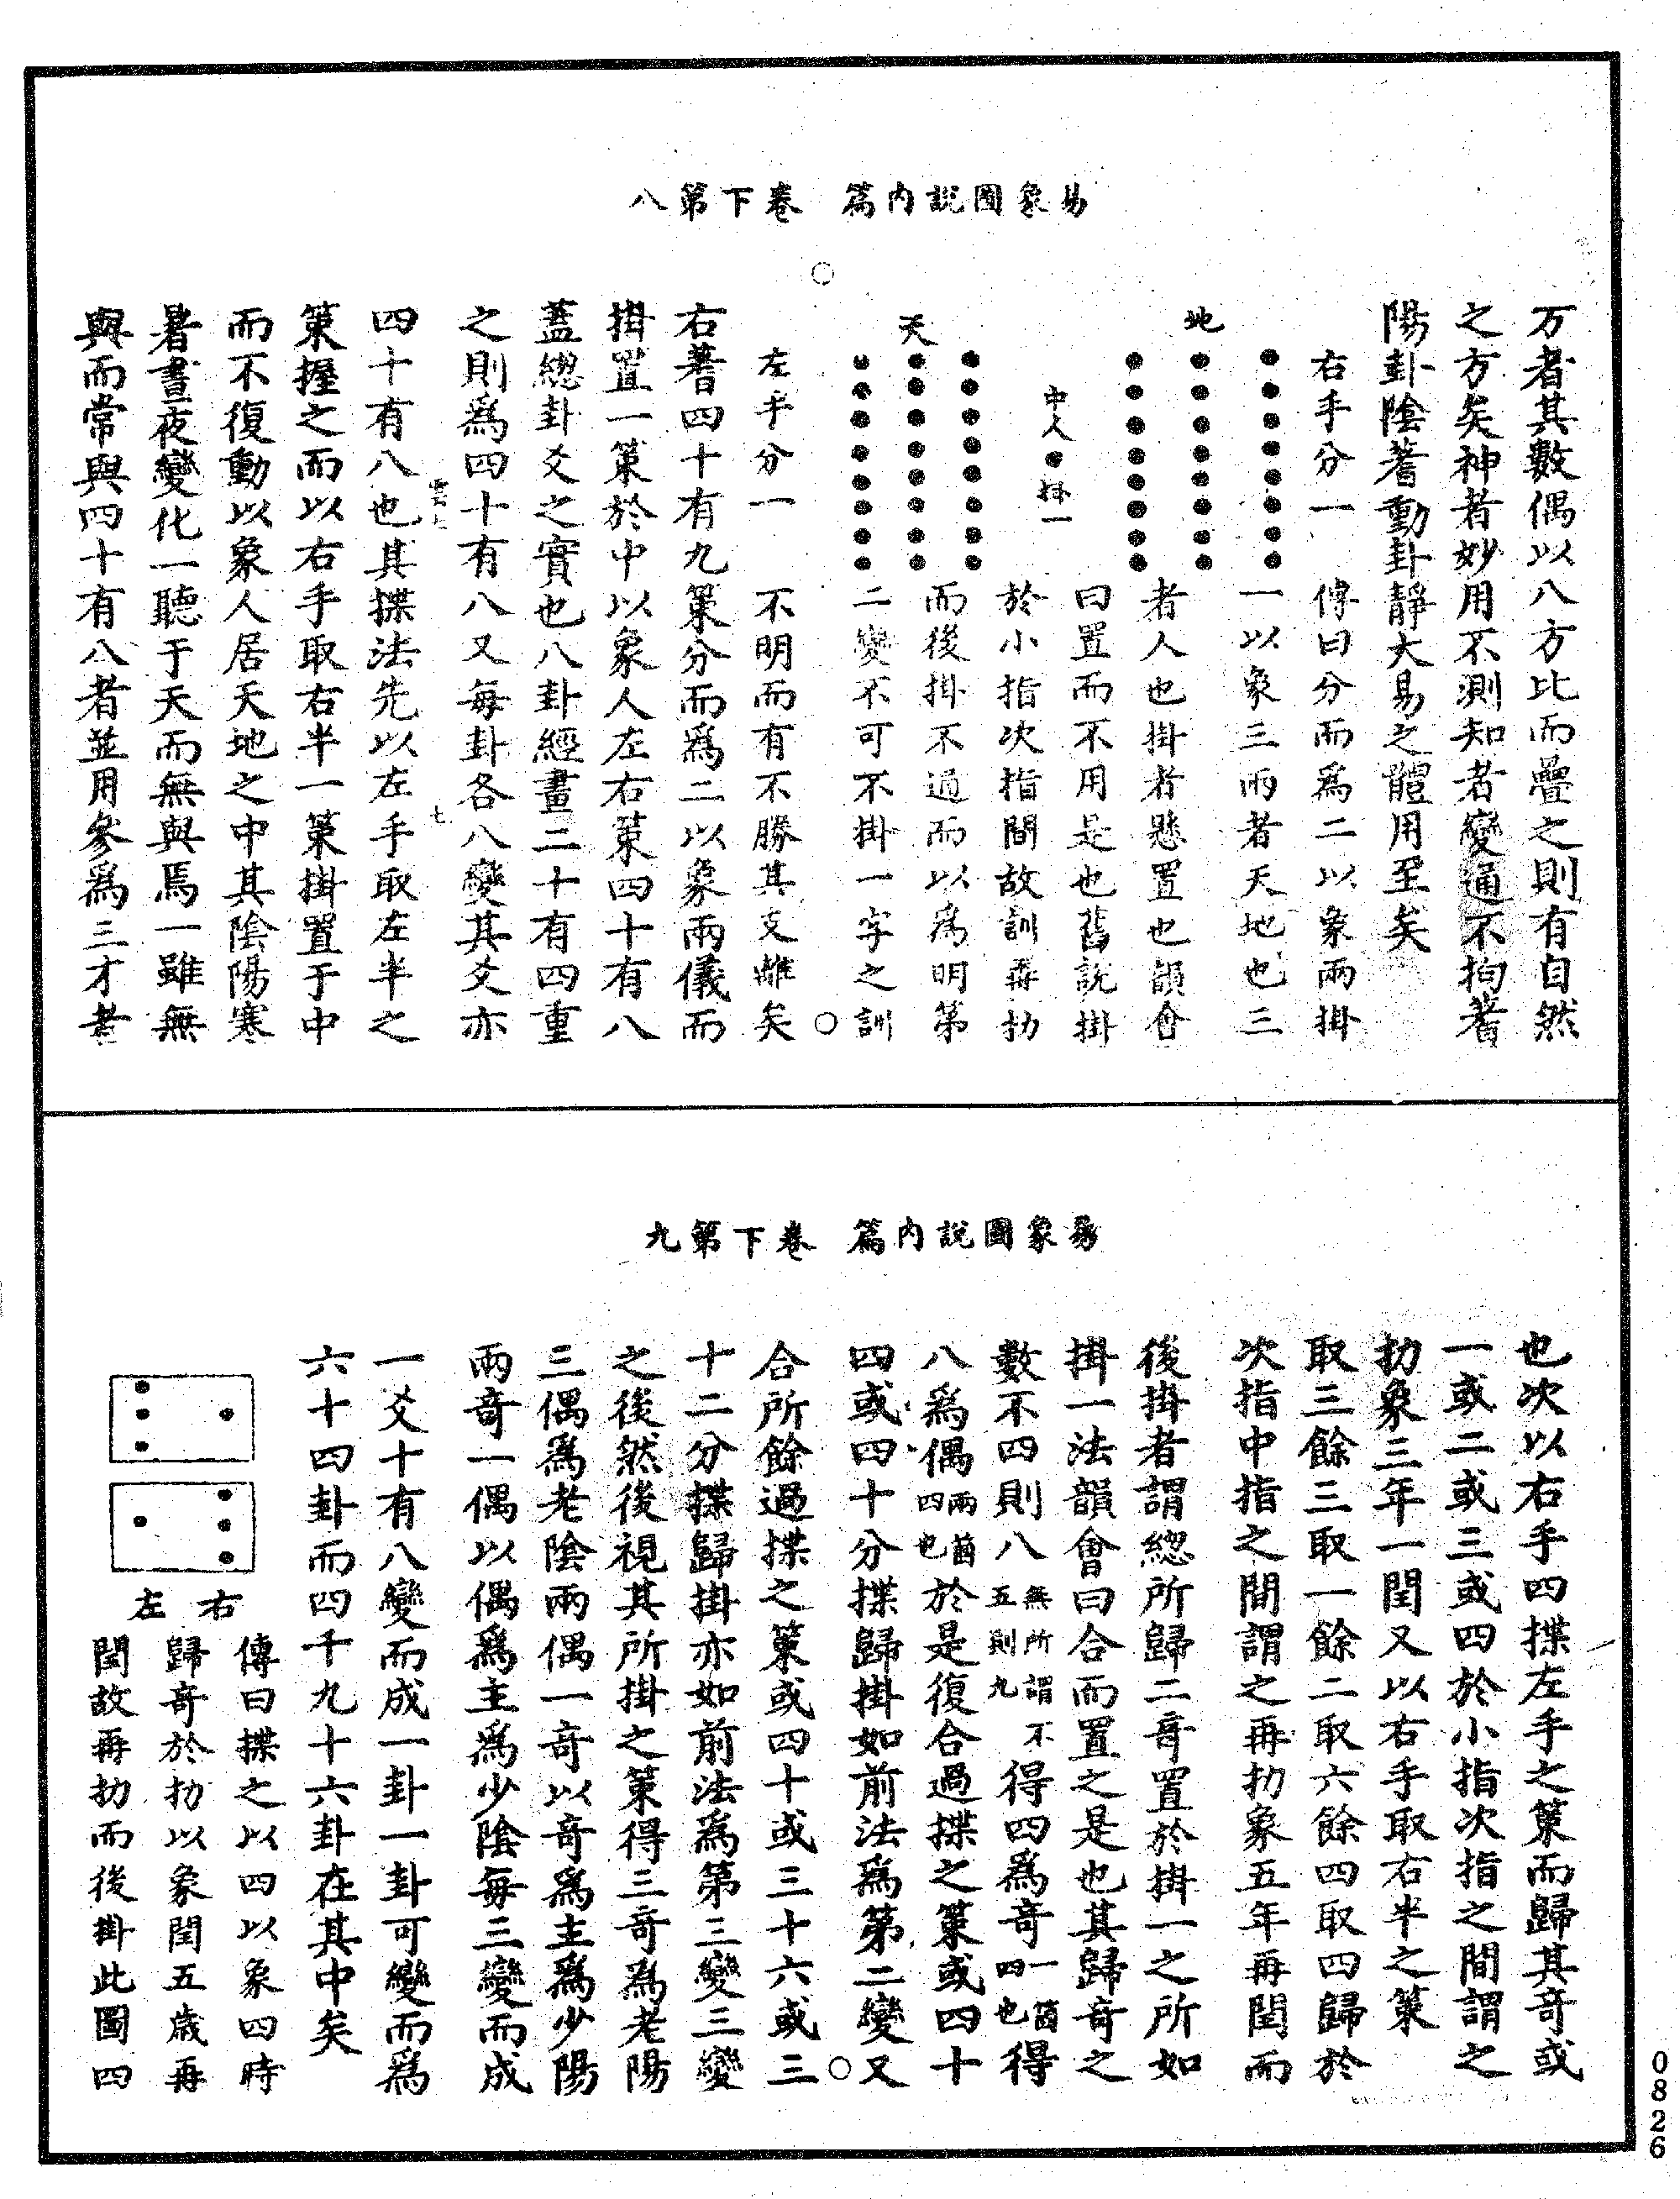 易象圖說內篇　卷下第八
万者其數偶以八方比而疊之則有自然
之方矣神者妙用不測知者變通不拘蓍
陽卦陰蓍動卦靜大易之體用至矣
地
右手分一
中人
掛一
天
左手分一
傳曰分而爲二以象兩掛
一以象三兩者天地也三
者人也掛者懸置也韻會
曰置而不用是也舊說掛
於小指次指間故訓再扐
而後掛不通而以爲明第
二變不可不掛一字之訓
不明而有不勝其支離矣
右蓍四十有九策分而爲二以象兩儀而
掛置一策於中以象人左右策四十有八
蓋總卦爻之實也八卦經畫二十有四重
之則爲四十有八又每卦各八變其爻亦
四十有八也其揲法先以左手取左半之
策握之而以右手取右半一策掛置于中
而不復動以象人居天地之中其陰陽寒
暑晝夜變化一聽于天而無與焉一雖無
與而常與四十有八者並用參爲三才者
七
易象圖說內篇　卷下第九
也次以右手四揲左手之策而歸其奇或
一或二或三或四於小指次指之間謂之
扐象三年一閏又以右手取右半之策
取三餘三取一餘二取六餘四取四歸於
次指中指之間謂之再扐象五年再閏而
後掛者謂總所歸二奇置於掛一之所如
掛一法韻會曰合而置之是也其歸奇之
數不四則八無所謂不五則九得四爲奇一箇四也得
八爲偶兩箇四也於是復合過揲之策或四十
四或四十分揲歸掛如前法爲第二變又
合所餘過揲之策或四十或三十六或三
十二分揲歸掛亦如前法爲第三變三變
之後然後視其所掛之策得三奇爲老陽
三偶爲老陰兩偶一奇以奇爲主爲少陽
兩奇一偶以偶爲主爲少陰每三變而成
一爻十有八變而成一卦一卦可變而爲
六十四卦而四千九十六卦在其中矣
右
左
傳曰揲之以四以象四時
歸奇於扐以象閏五歲再
閏故再扐而後掛此圖四
0826